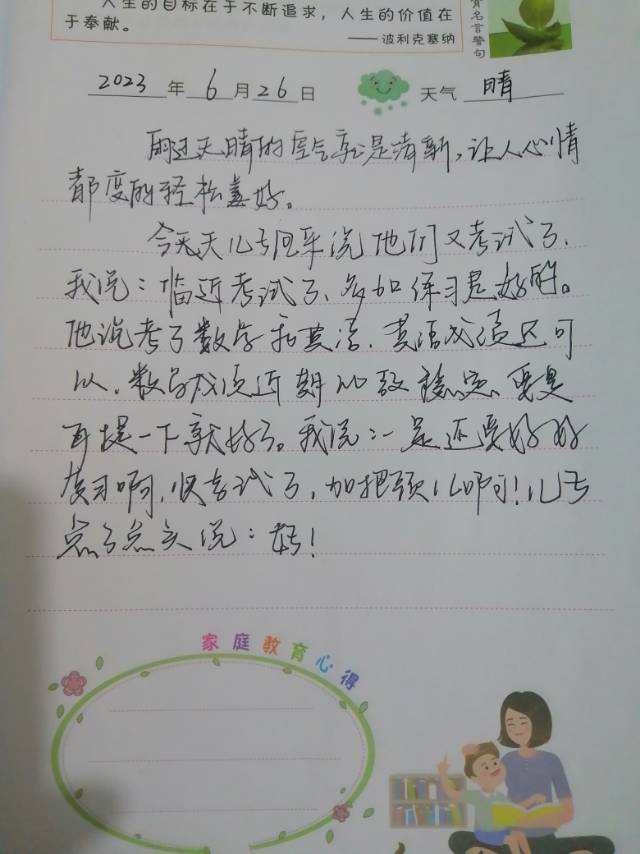 人生的目标在于不断追求，人生的价值在
于奉献。
——波利克塞纳
育名言警句
2023年6月26日 天气 晴
雨过天晴的空气就是清新，让人心情
都变的轻松美好。
今天天儿子回来说他们又考试了，
我说：临近考试了、多加练习是好的。
他说考了数学和英语，英语成绩还可
以，数学成绩近期比较稳定 要是
再提一下就好了。我说：一定还要好好
复习啊，快考试了，加把劲儿啊！儿子
点了点头说：好！
家庭教育心得